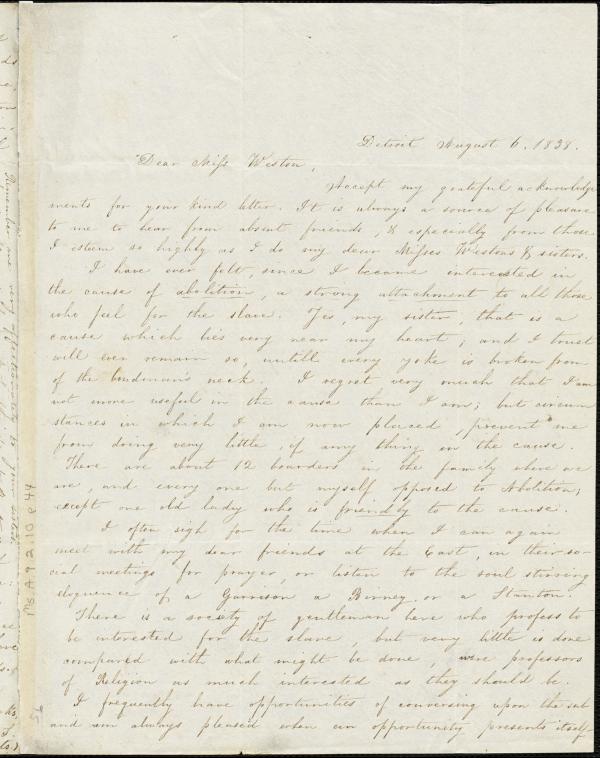 Detroit August 6. 1838.
Dear Miss Weston,
Accept my grateful acknowledge
ments for your kind letter. It is always a source of pleasure
to me to hear from absent friends, & especially from those
I esteem so highly as I do my dear Misses Westons & sisters.
I have ever felt, since I became interested in
the cause of abolition, a strong attachment to all those
who feel for the slave. Yes, my sister, that is a
cause which lies very near my heart; and I trust
will ever remain so, untill every yoke is broken from
of the bondman's neck. I regret very much that I am
not more useful in the cause than I am; but circum
stances in which I am now placed, prevent me
from doing very little, if any thing in the cause.
There are about 12 boarders in the family where we
are, and every one but myself opposed to Abolition;
except one old lady who is friendly to the cause.
I often sigh for the time when I can again
meet with my dear friends at the East, in their so-
cial meetings for prayer, or listen to the soul stirring
eloquence of a Garrison a Birney or a Stanton.
There is a society of gentleman here who profess to
be interested for the slave but very little is done
compared with what might be done, were professors
of Religion as much interested as they should be.
I frequently have opportunities of conversing upon the sub
and am always pleased when an opportunity presents itself
Ms.A.9.2.10.p44
Remember me very affectionately to your